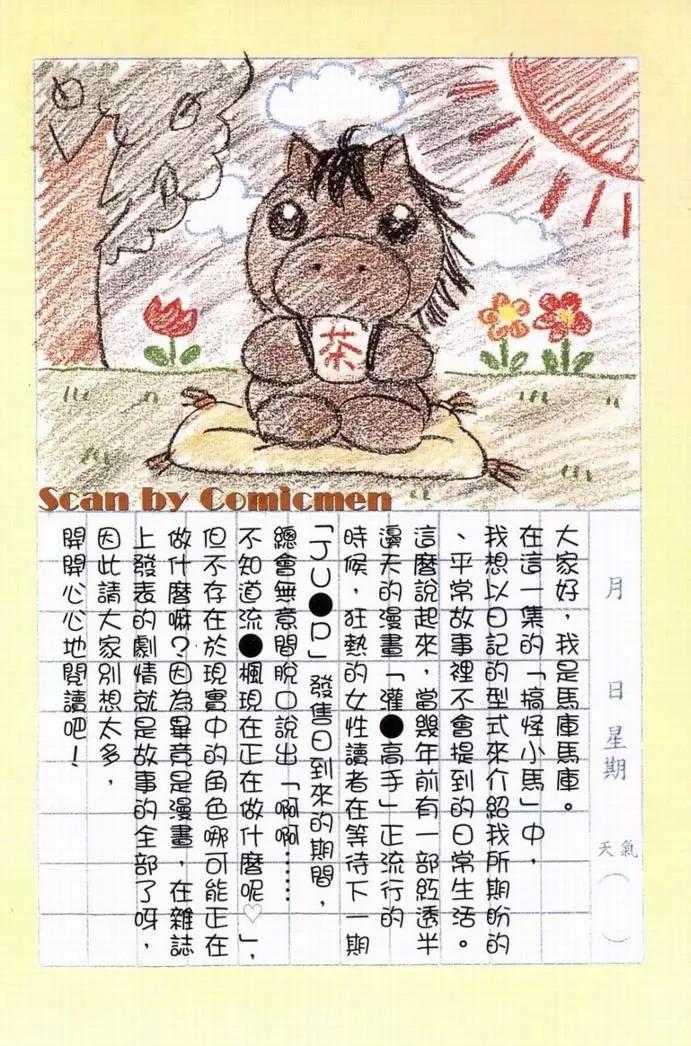 茶
Scan by Comicmen
月
日
星期
天氣( )
大家好，我是馬庫馬庫。
在這一集的「搞怪小馬」中，
我想以日記的型式來介紹我所期盼的
、平常故事裡不會提到的日常生活。
這麼說起來，當幾年前有一部紅透半
邊天的漫畫「灌●高手」正流行的
時候，狂熱的女性讀者在等待下一期
「JU●P」發售日到來的期間，
總會無意間脫口說出「啊啊……
不知道流●楓現在正在做什麼呢♡」，
但不存在於現實中的角色哪可能正在
做什麼嘛？因為畢竟是漫畫，在雜誌
上發表的劇情就是故事的全部了呀，
因此請大家別想太多，
開開心心地閱讀吧！